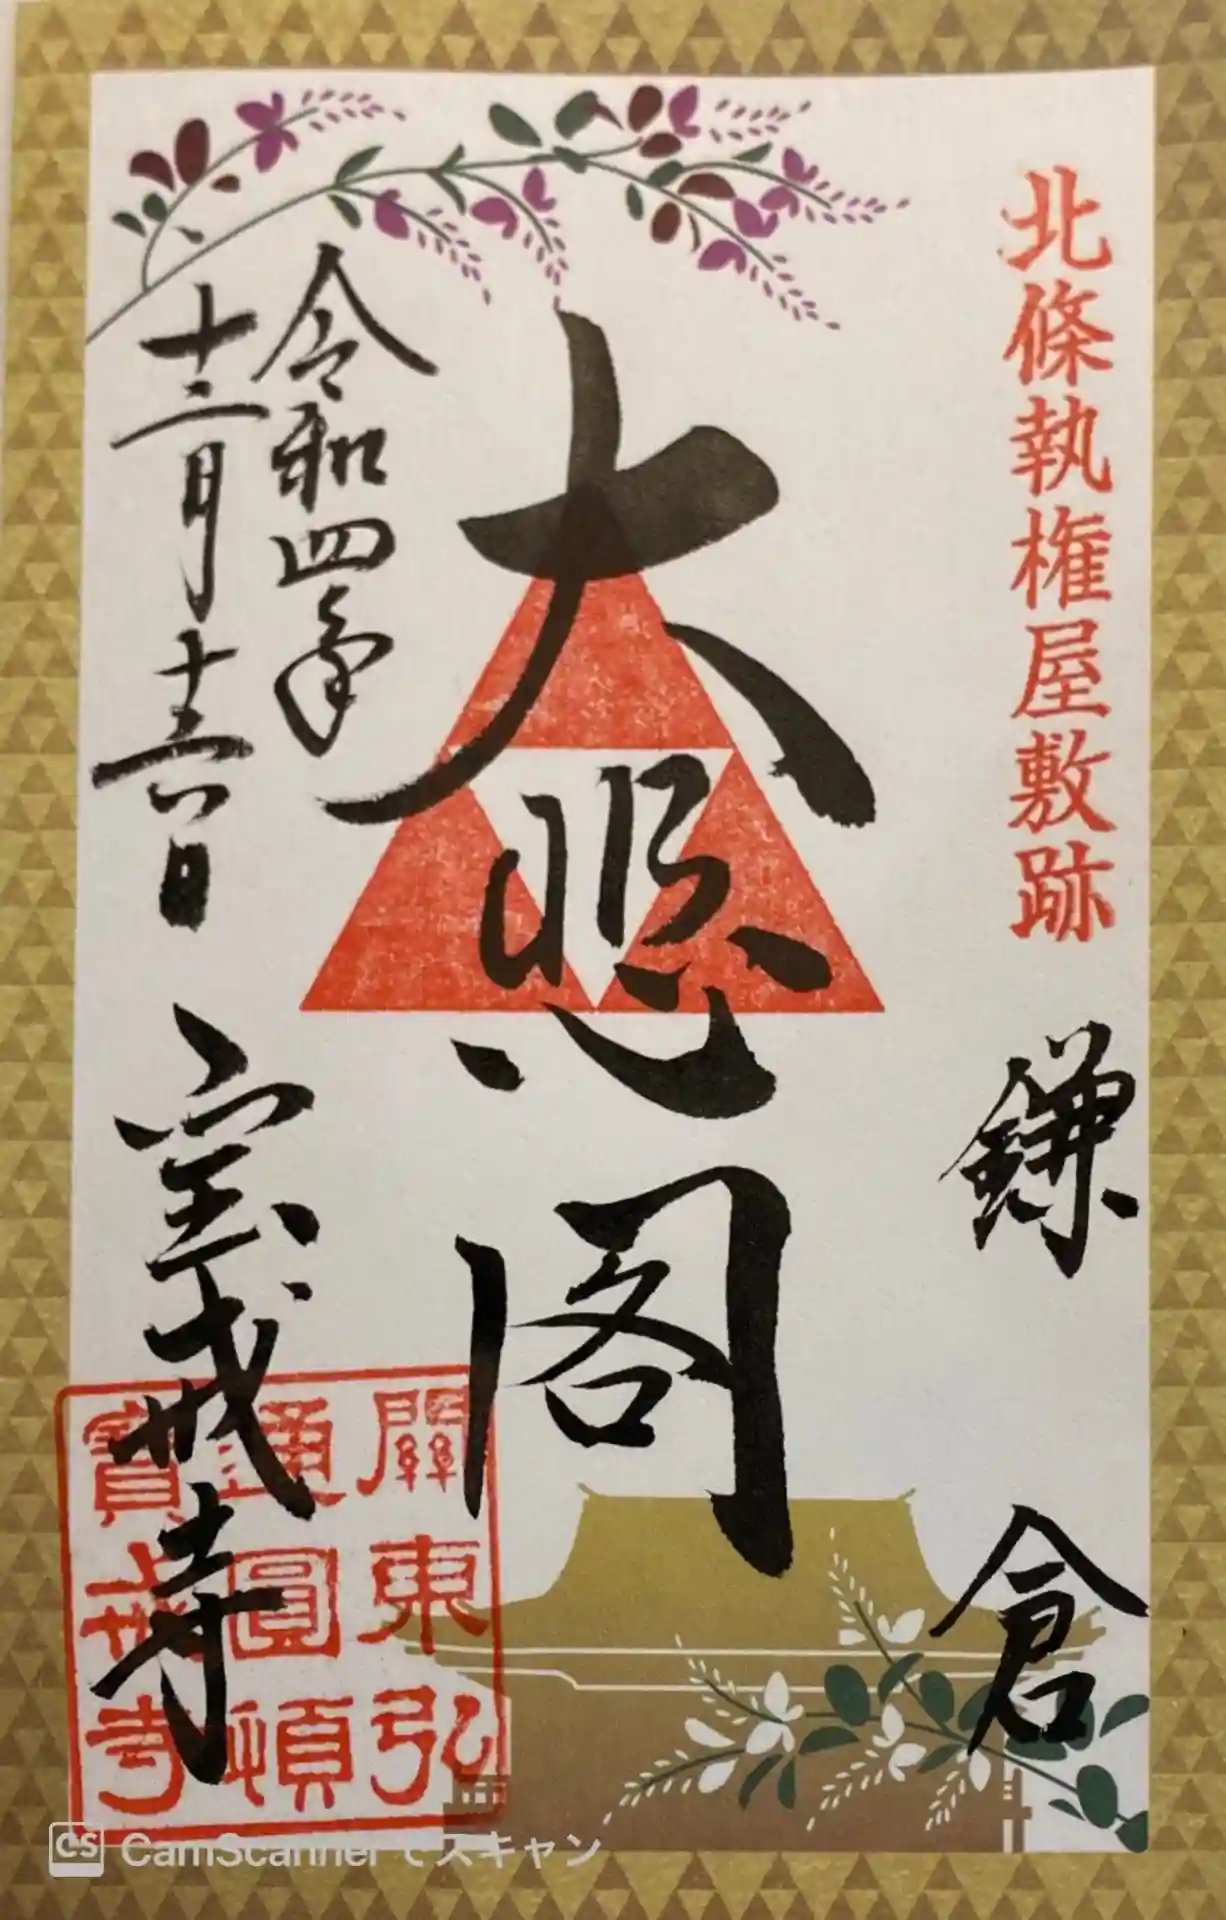 北條執権屋敷跡
鎌倉
大悲閣
令和四年
十二月十六日
宝戒寺
關東弘
通圓頓
寶戒寺
CS CamScannerでスキャン